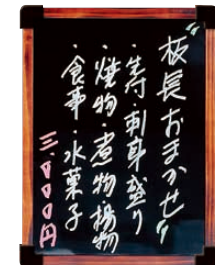 板長おまかせ〃
・寿・刺身盛り
・焼物・煮物・揚物
・食事・水菓子
三、〇〇〇円